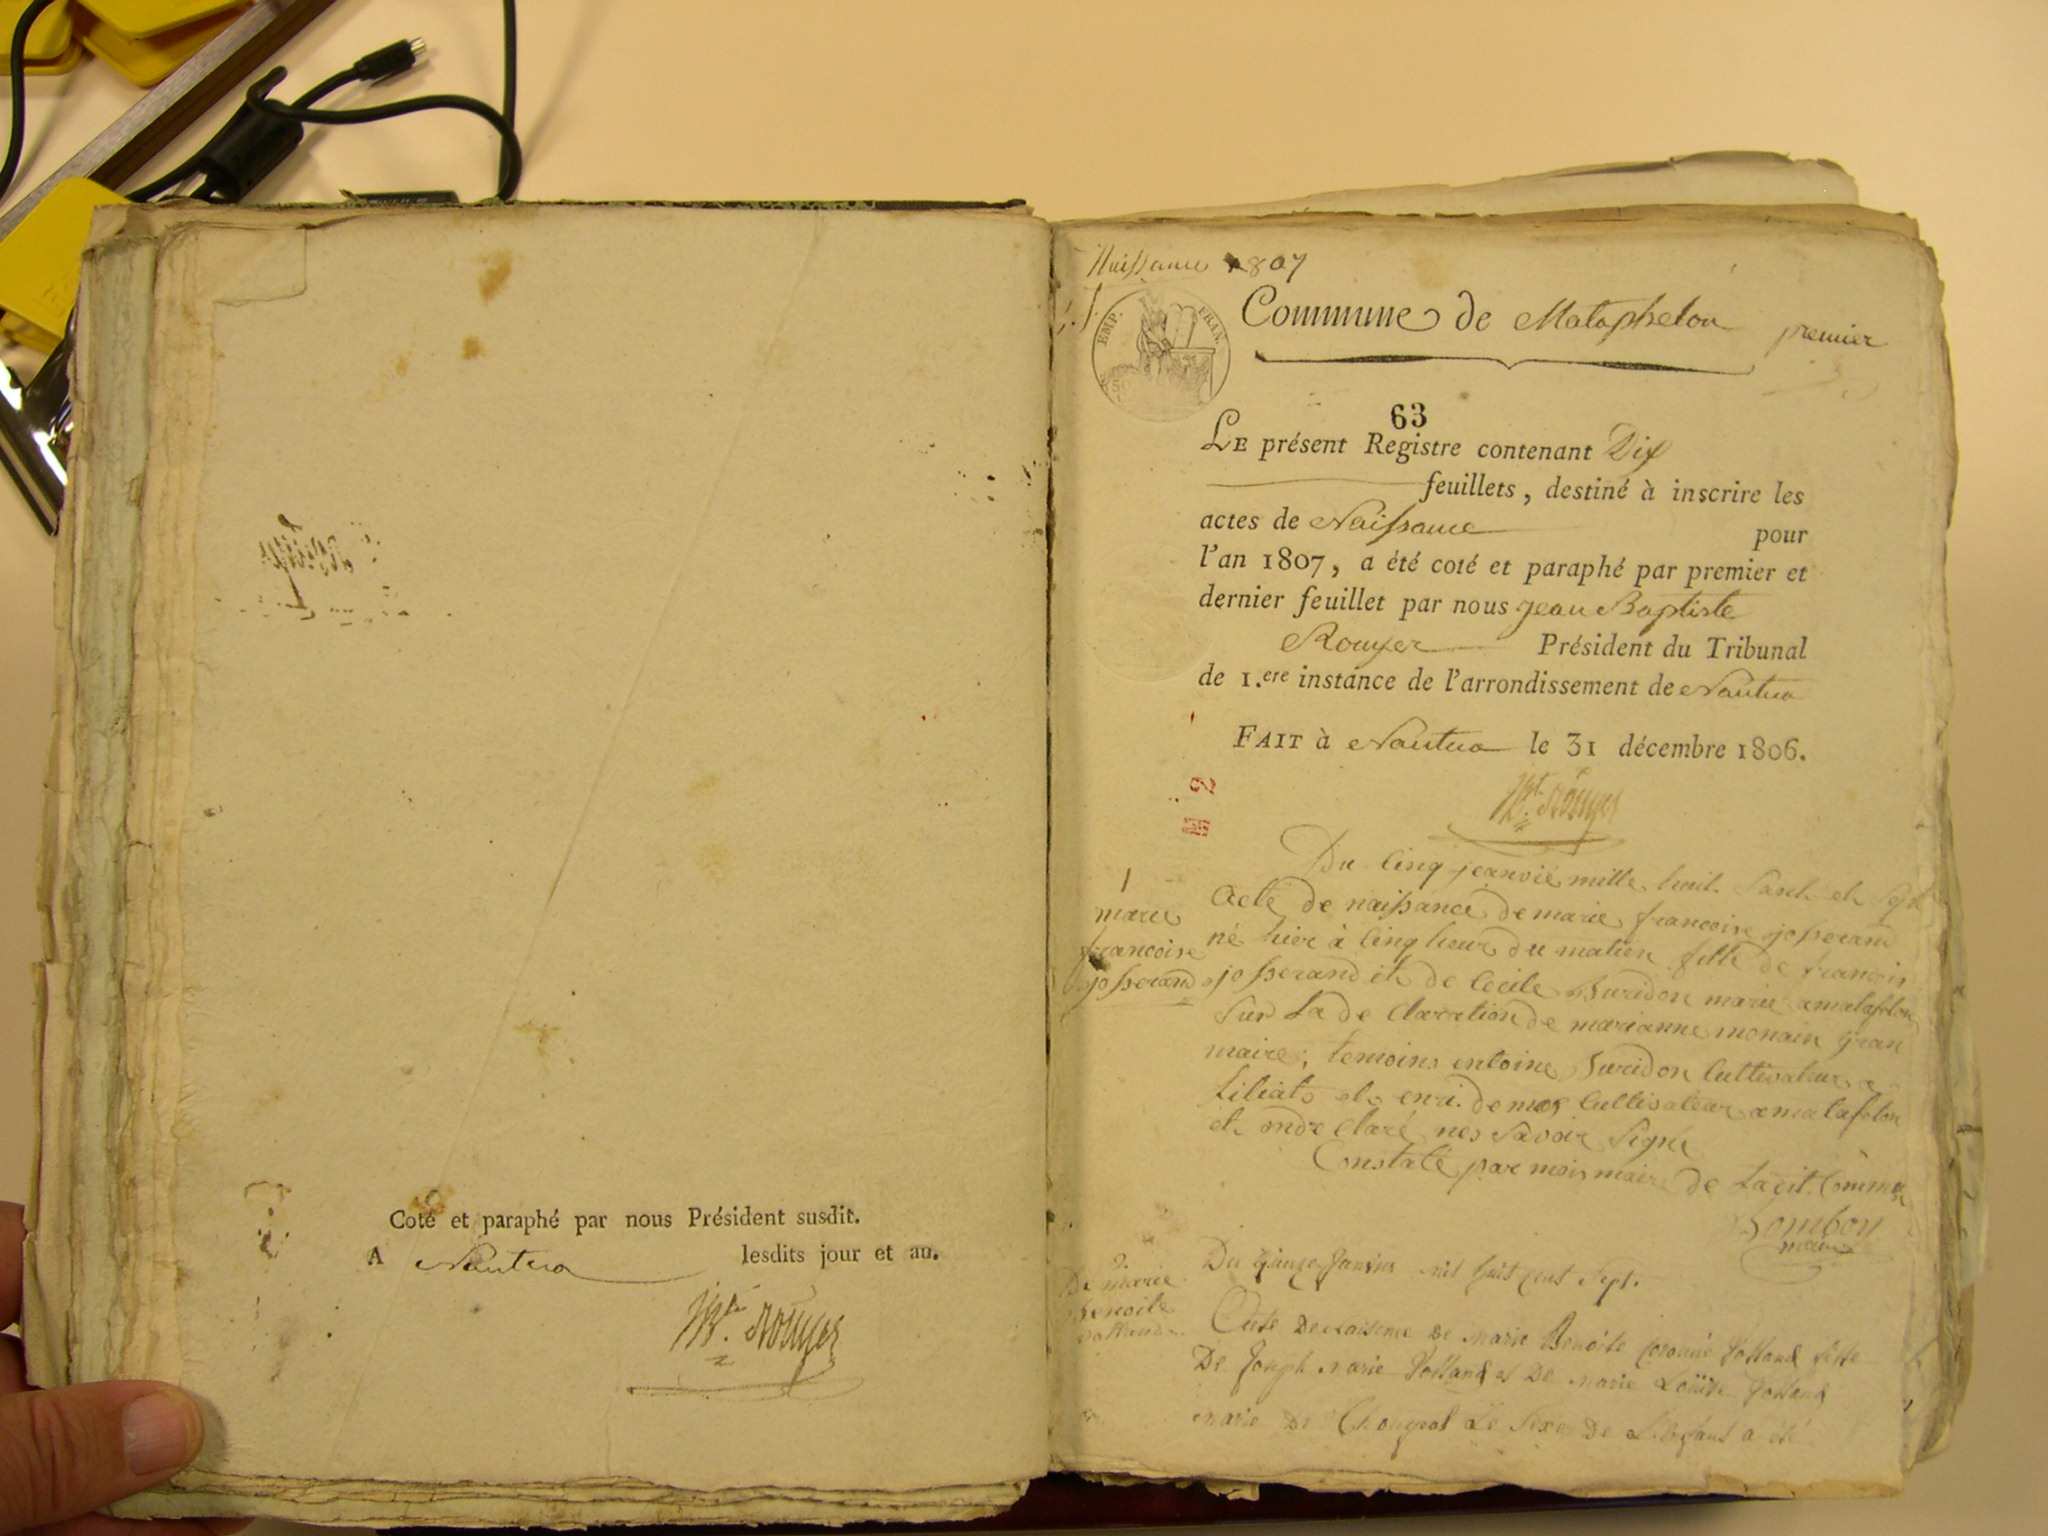 Coté et paraphé par nous Président susdit.
A Nantua lesdits jour et an.
Jn. Bte. Rouyer
Naissance 1807
EMP. FRAN.
Commune de Mataphelon premier
63
LE présent Registre contenant Dix
feuillets, destiné à inscrire les
actes de Naissance pour
l'an 1807, a été coté et paraphé par premier et
dernier feuillet par nous Jean Baptiste
Rouyer Président du Tribunal
de 1.ere instance de l'arrondissement de Nantua
FAIT à Nantua le 31 décembre 1806.
Bte. Rouyer
1
marie
francoise
josserand
Du Cinq mille huit et Sept
Acte de naissance de marie francoise josserand
né hier à Cinq heur du matien fille de francois
josserand et de Cecile Buridon marié amatafelon
sur la de Claration de marianne monain gran
maire, temoins entoine Buridon Cultivateur a
et enri Cultivateur amatafelon
et savoir signé
Constaté par moi maire de
Bombon
maire
2
De marie
Benoite
Du quinze Janvier mil huit cent sept.
Acte de Naissance de Marie Benoite fille
De Joseph Marie et De Marie Louise
Marié De Le Sexe De L'enfant a été